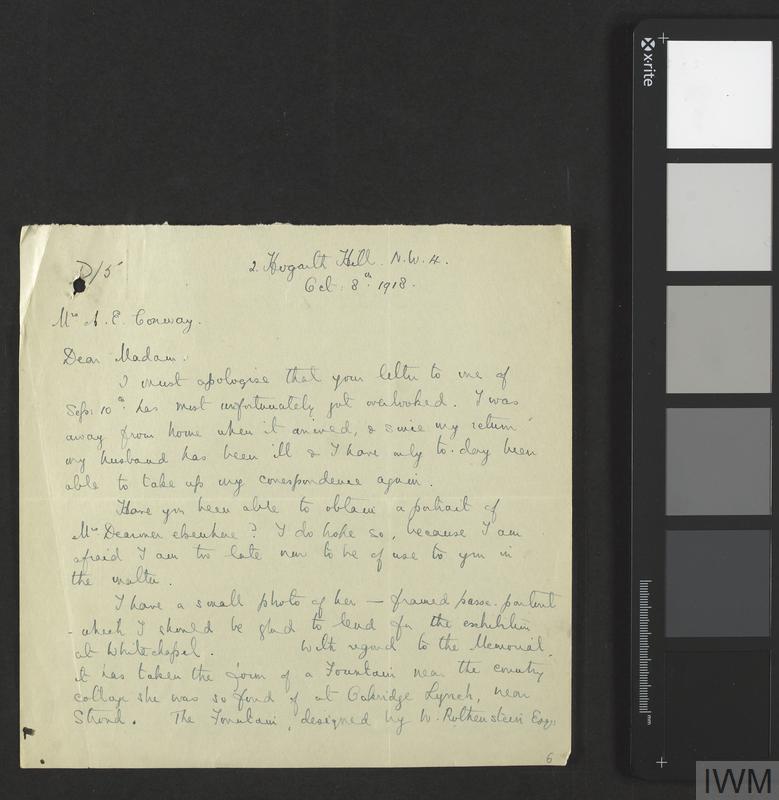 D/5
2. Hogarth Hill. N.W. 4.
Oct: 8th 1918.
Mrs A. E. Conway.
Dear Madam.
I must apologise that your letter to me of
Sept: 10th has most unfortunately got overlooked. I was
away from home when it arrived, & since my return
my husband has been ill & I have only to-day been
able to take up my correspondence again.
Have you been able to obtain a portrait of
Mrs Dearmer elsewhere? I do hope so, because I am
afraid I am too late now to be of use to you in
the matter.
I have a small photo of her — framed passe-partout
- which I should be glad to lend for the exhibition
at Whitechapel. With regard to the Memorial.
it has taken the form of a Fountain near the country
cottage she was so fond of at Oakridge Lynch, near
Stroud. The Fountain, designed by W. Rothenstein Esqr.
6
x-rite
mm
IWM